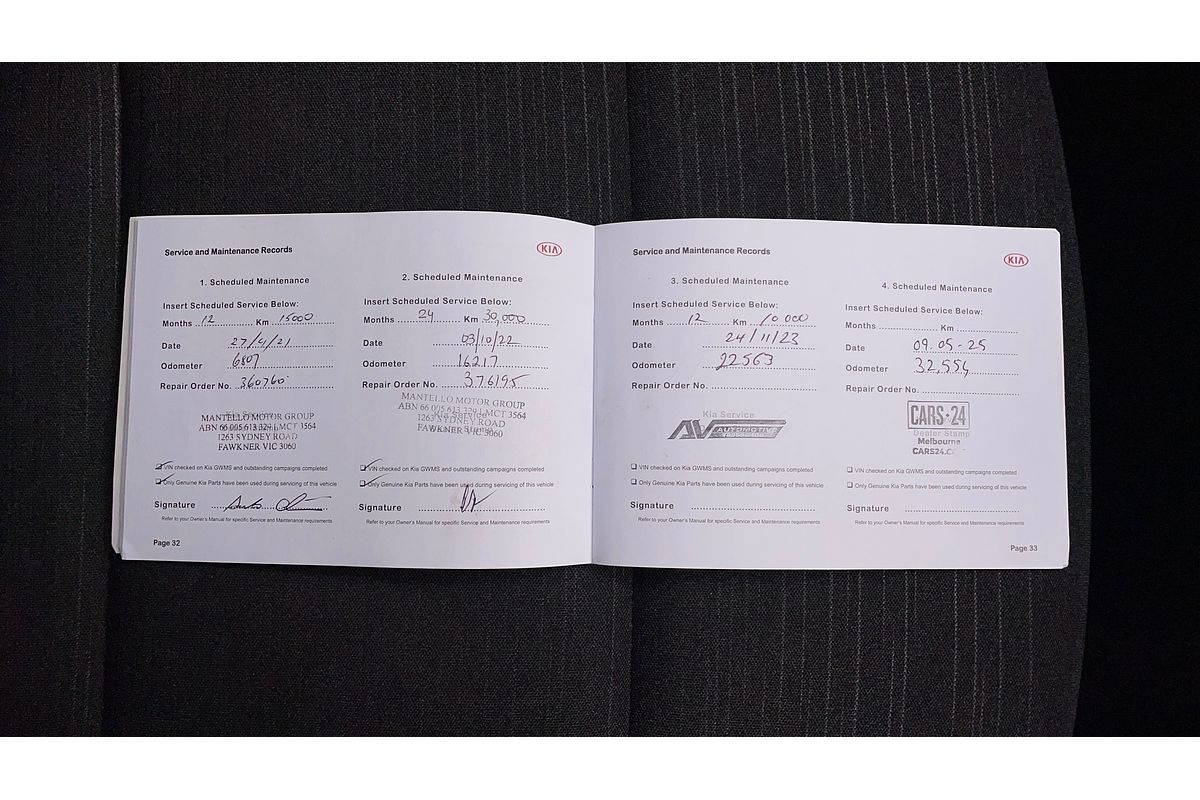 Service and Maintenance Records
KIA
1. Scheduled Maintenance
Insert Scheduled Service Below:
Months 12 Km 15000
Date 27/4/21
Odometer 6807
Repair Order No. 360760
MANTELLO MOTOR GROUP
ABN 66 005 613 329 LMCT 3564
1263 SYDNEY ROAD
FAWKNER VIC 3060
VIN checked on Kia GWMS and outstanding campaigns completed
Only Genuine Kia Parts have been used during servicing of this vehicle
Signature
Refer to your Owner's Manual for specific Service and Maintenance requirements
Page 32
2. Scheduled Maintenance
Insert Scheduled Service Below:
Months 24 Km 30,000
Date 03/10/22
Odometer 16217
Repair Order No. 376195
MANTELLO MOTOR GROUP
ABN 66 005 613 329 LMCT 3564
Kia Service
1263 SYDNEY ROAD
FAWKNER VIC 3060
VIN checked on Kia GWMS and outstanding campaigns completed
Only Genuine Kia Parts have been used during servicing of this vehicle
Signature
Refer to your Owner's Manual for specific Service and Maintenance requirements
Service and Maintenance Records
KIA
3. Scheduled Maintenance
Insert Scheduled Service Below:
Months 12 Km 10 000
Date 24/11/23
Odometer 22563
Repair Order No.
Kia Service
AV AUTOMOTIVE
VIN checked on Kia GWMS and outstanding campaigns completed
Only Genuine Kia Parts have been used during servicing of this vehicle
Signature
Refer to your Owner's Manual for specific Service and Maintenance requirements
4. Scheduled Maintenance
Insert Scheduled Service Below:
Months Km
Date 09.05-25
Odometer 32,554
Repair Order No.
CARS·24
Dealer Stamp
Melbourne
VIN checked on Kia GWMS and outstanding campaigns completed
Only Genuine Kia Parts have been used during servicing of this vehicle
Signature
Refer to your Owner's Manual for specific Service and Maintenance requirements
Page 33